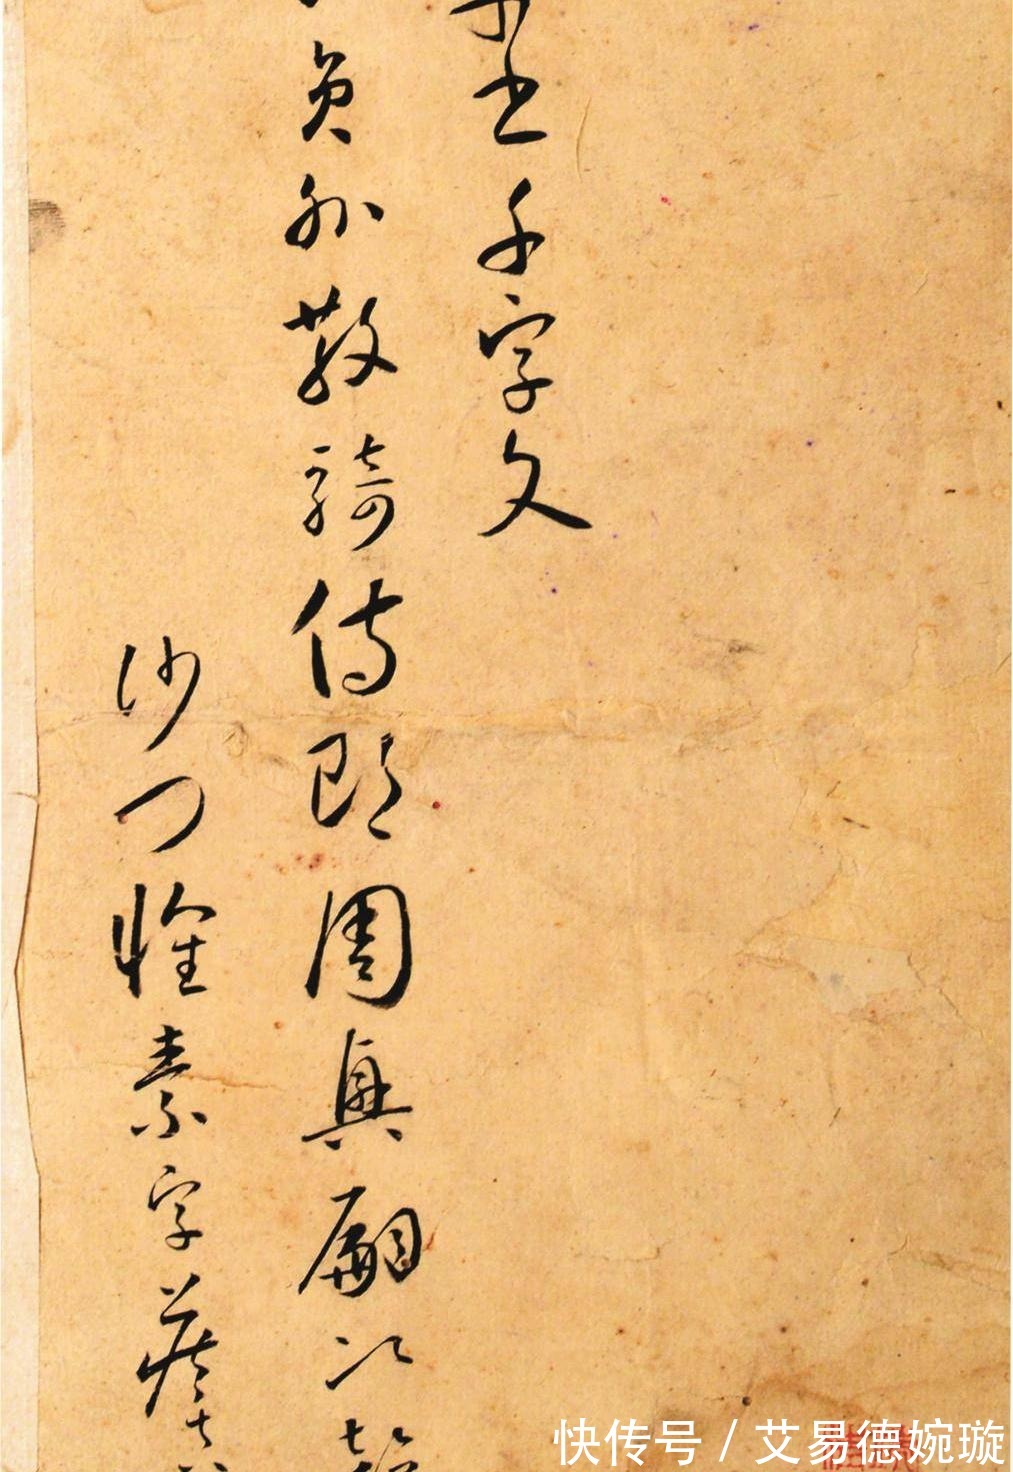 書千字文
員外散騎侍郎周興嗣次韻
沙門懷素字藏
快传号 / 艾易德婉璇